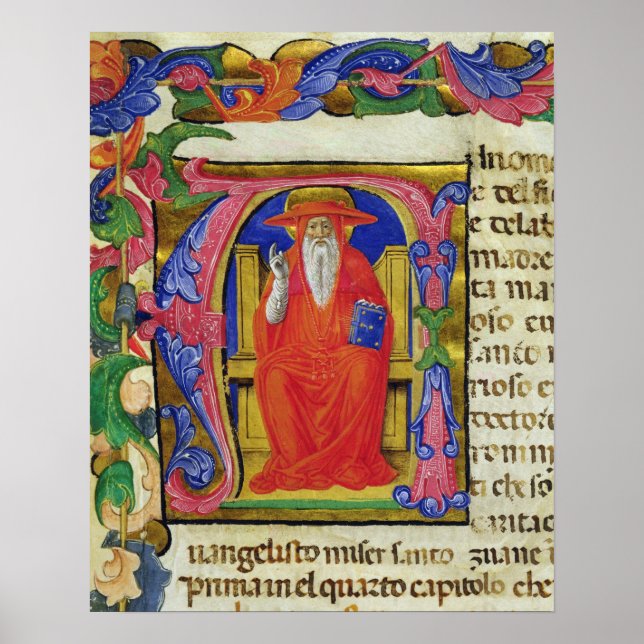 lnome
e del fi
e dela b
madre
ta mar
oso eu
santo
rioso e
rectore
ti che so
caritae
uangelisto miser santo zuane
prima in el quarto capitolo che